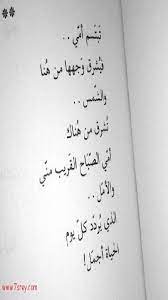 **
تَبتسم أمّي ..
فيُشرق وَجهها من هُنا
والشّمس ..
تُشرق من هُناك
أمّي الصّباح القريب منّي
والأمل ..
الذي يُردّد كلّ يوم
الحَياة أجمل !
www.7srey.com